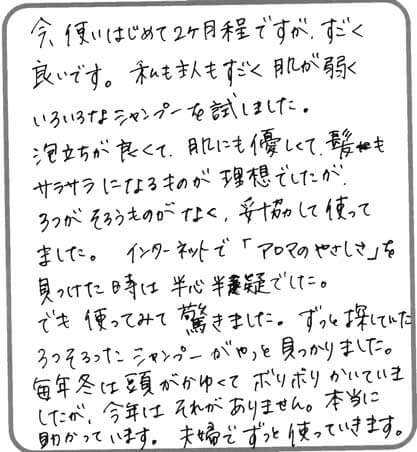 今、使いはじめて2ヶ月程ですが、すごく
良いです。私も主人もすごく肌が弱く
いろいろなシャンプーを試しました。
泡立ちが良くて、肌にも優しくて、髪も
サラサラになるものが理想でしたが、
3つがそろうものがなく、妥協して使って
ました。インターネットで「アロマのやさしさ」を
見つけた時は半心半疑でした。
でも使ってみて驚きました。ずっと探していた
3つそろったシャンプーがやっと見つかりました。
毎年冬は頭がかゆくてボリボリかいていま
したが、今年はそれがありません。本当に
助かっています。夫婦でずっと使っていきます。